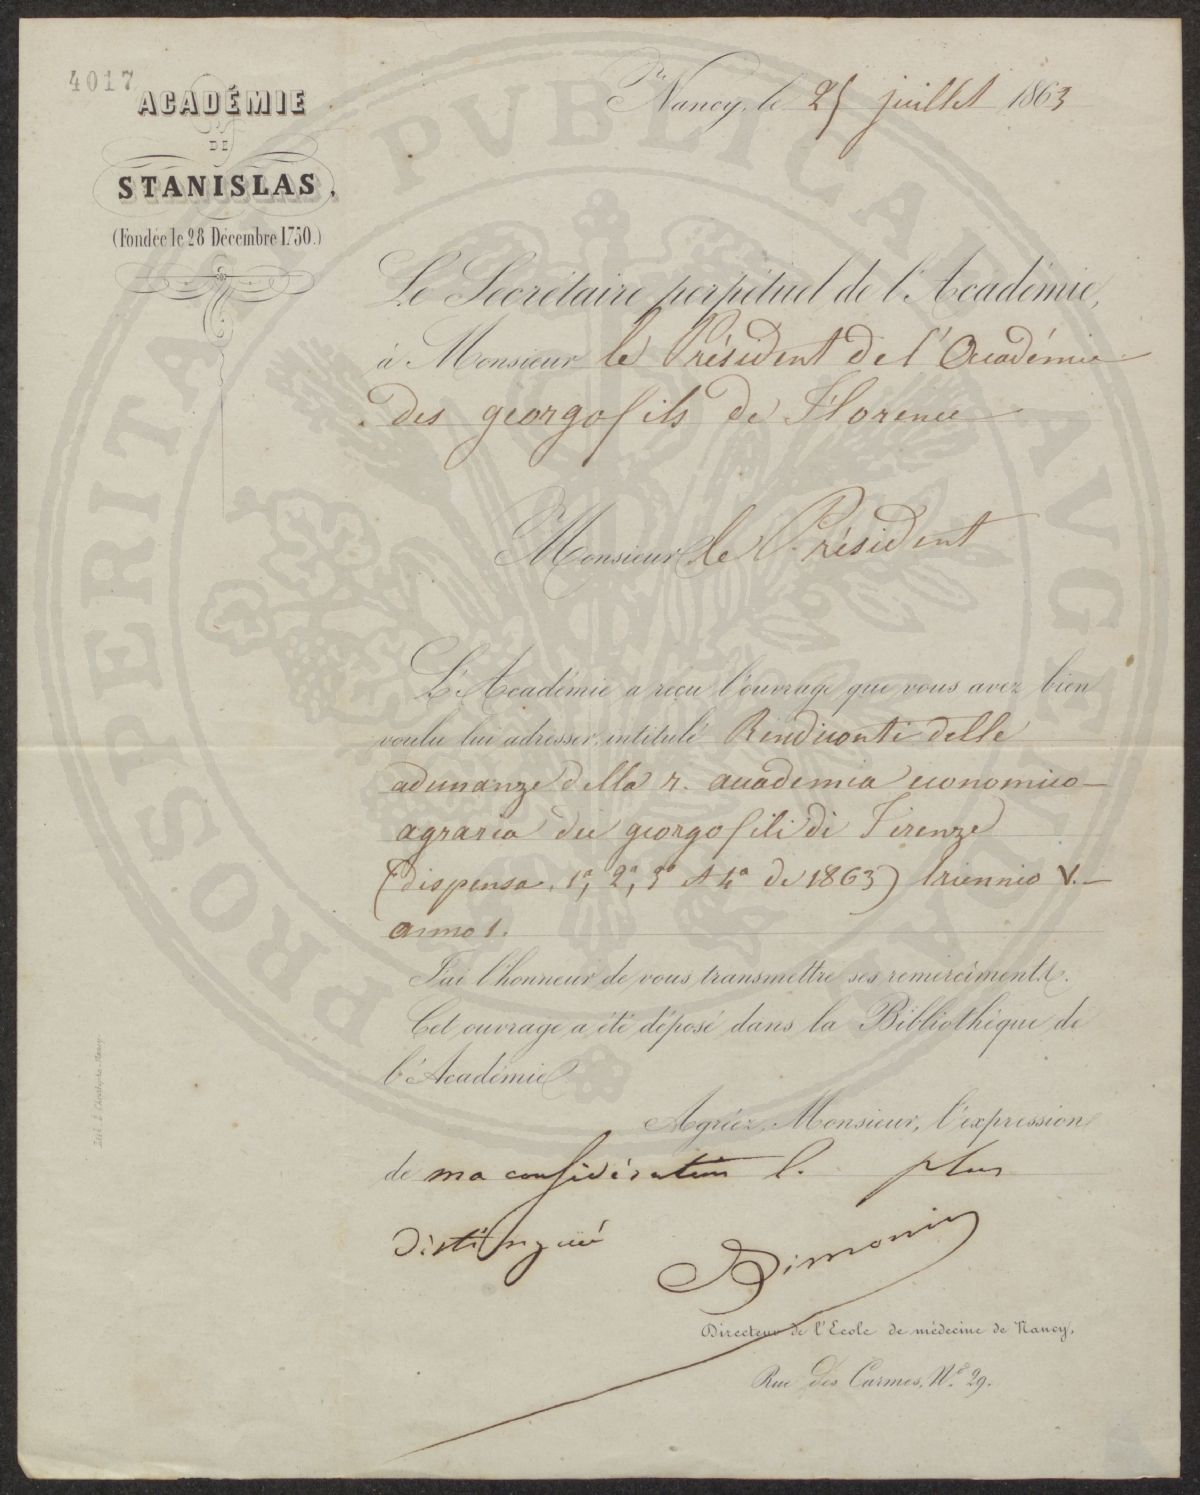 4017
ACADÉMIE
DE
STANISLAS,
(Fondée le 28 Décembre 1750.)
Nancy, le 25 juillet 1863
Le Secrétaire perpétuel de l'Académie,
à Monsieur le Président de l'Académie
des georgofils de Florence
Monsieur le Président
L'Académie a reçu l'ouvrage que vous avez bien
voulu lui adresser, intitulé Rendiconti delle
adunanze della r. accademia economico-
agraria dei georgofili di Firenze
(dispensa, 1a, 2a, 3a et 4a de 1863) triennio V.-
anno 1.
J'ai l'honneur de vous transmettre ses remerciments.
Cet ouvrage a été déposé dans la Bibliothèque de
l'Académie
Agréez, Monsieur, l'expression
de ma considération l. plus
distinguée
Simonin
Directeur de l'Ecole de médecine de Nancy,
Rue des Carmes, No. 29.
Lith. L. Christophe, Nancy.
PROSPERITATI PVBLICAE AVGENDAE